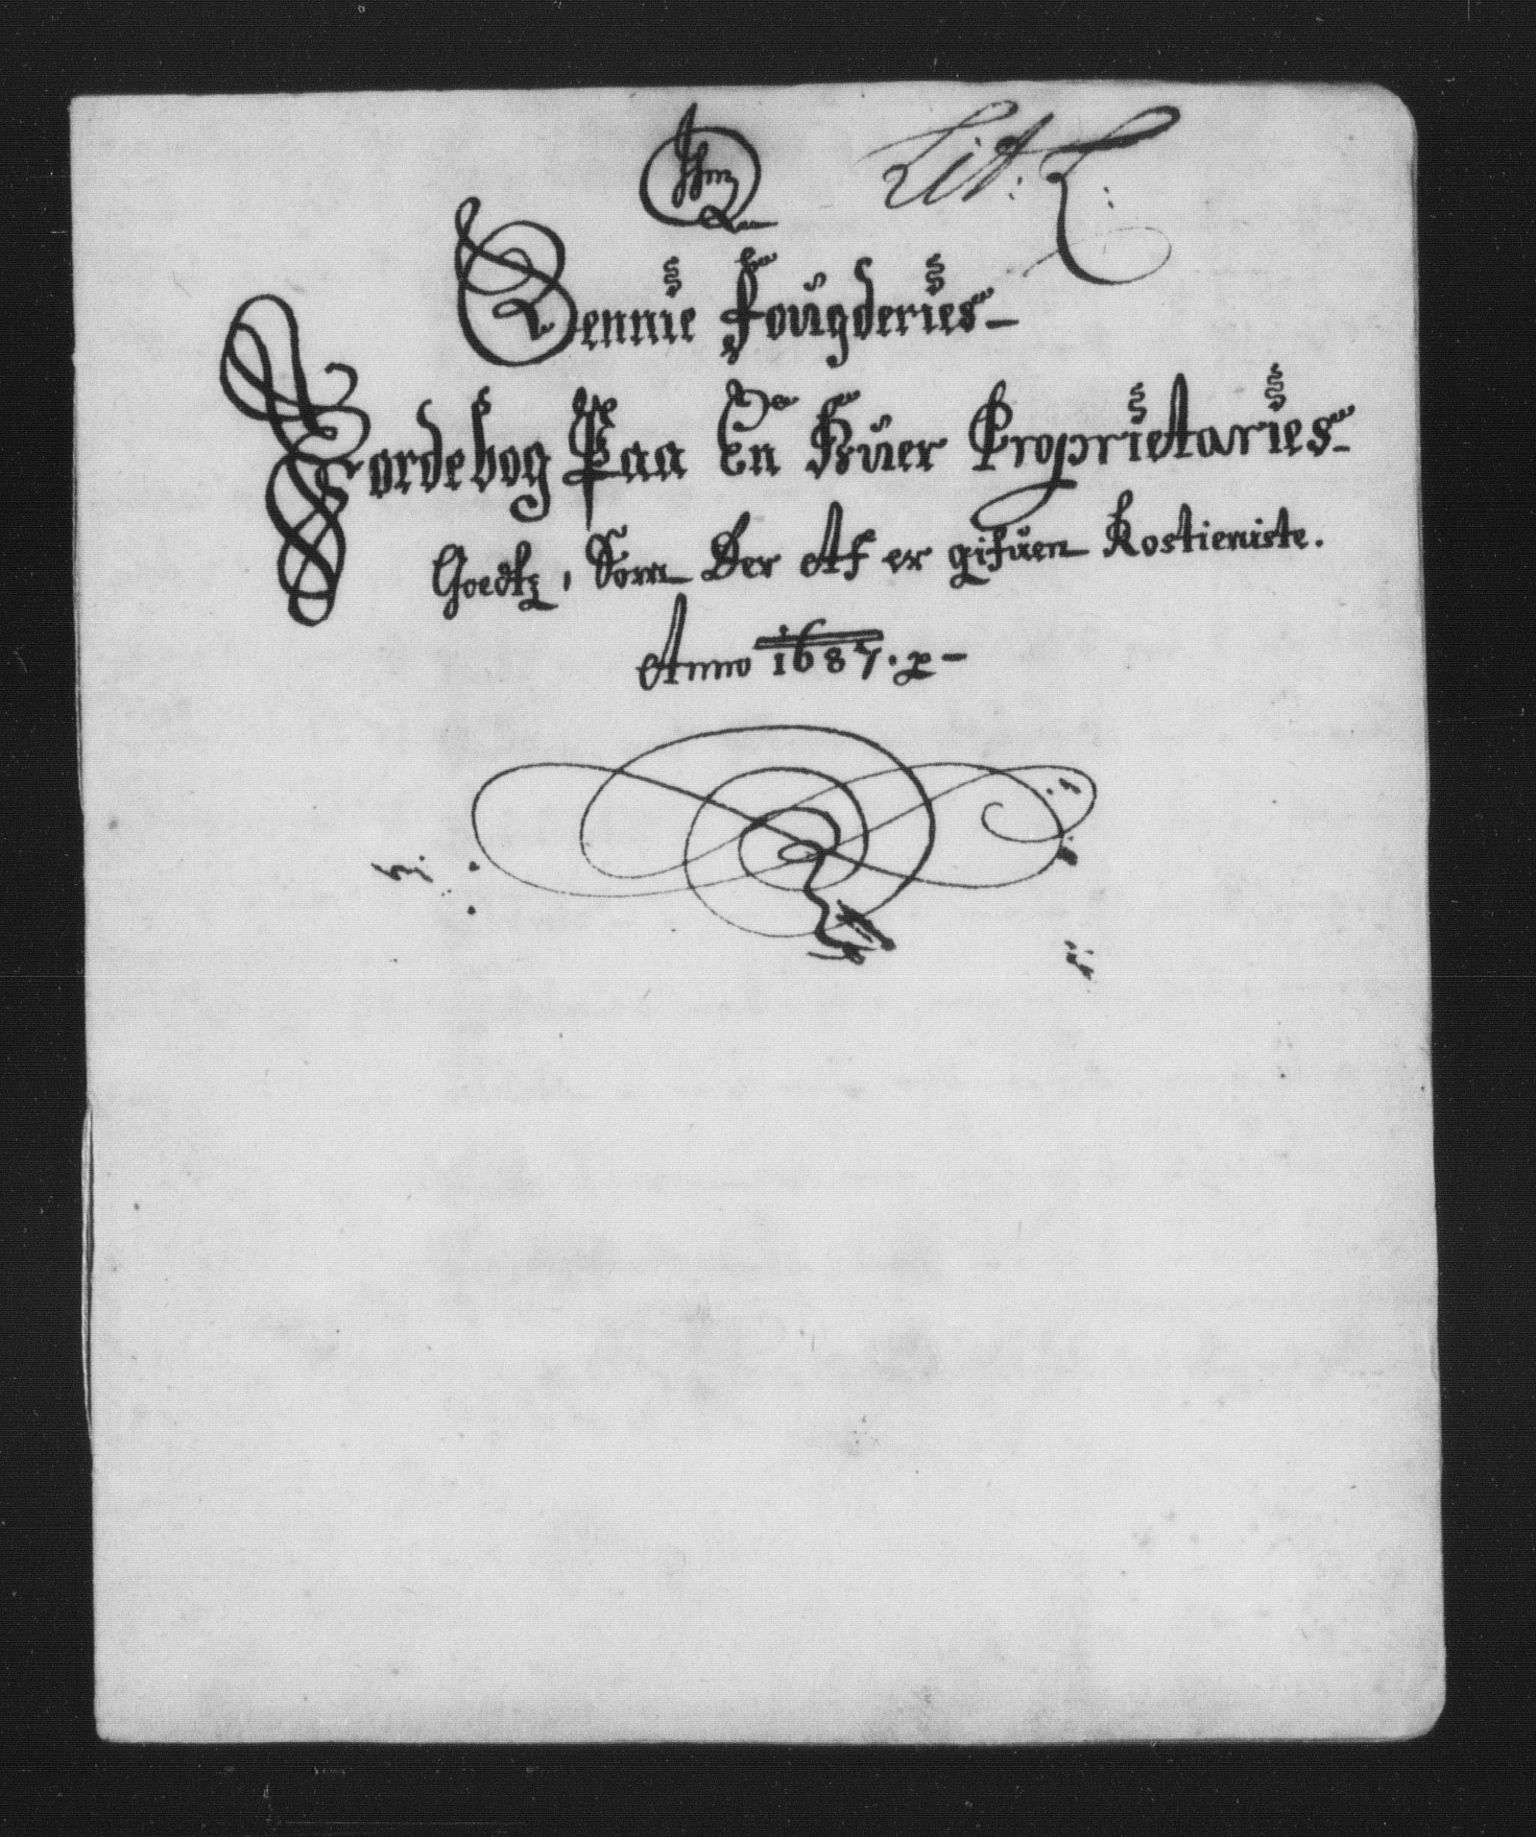 Lit: L:
Lennie Fougderies
Jordebog Paa En Huer Proprietaries
Goedtz, Som Der Af er gifuen Rostieniste.
Anno 1687.